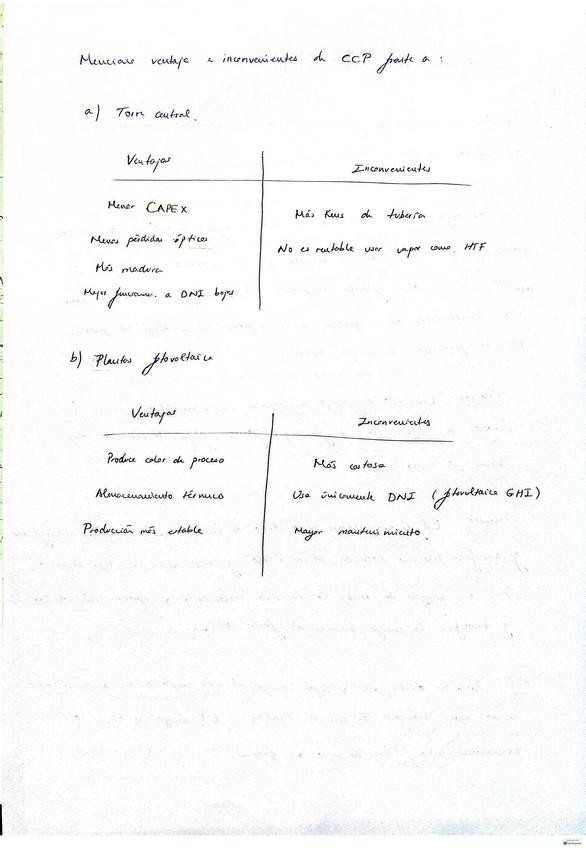 Mencione ventajas e inconvenientes de CCP frente a :
a) Torre central.
Ventajas
Inconvenientes
Menor CAPEX
Menos pérdidas ópticas
Más madura
Mejor funcionam. a DNI bajas
Más Kms de tubería
No es rentable usar vapor como HTF
b) Plantas fotovoltaica
Ventajas
Inconvenientes
Produce calor de proceso
Almacenamiento térmico
Producción más estable
Más costosa
Usa únicamente DNI (fotovoltaica GHI)
Mayor mantenimiento.